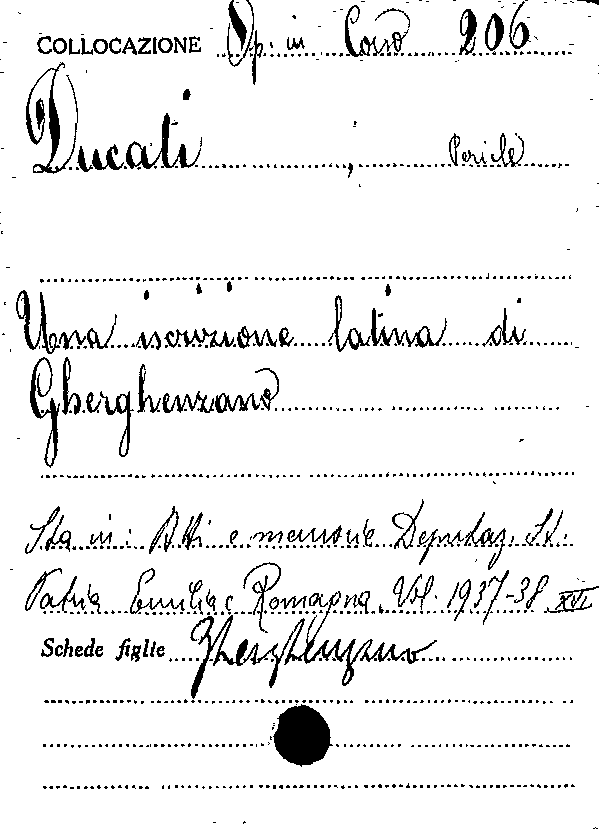 COLLOCAZIONE Op. in Corso 206
Ducati , Pericle
Una iscrizione latina di
Gherghenzano
Sta in: Atti e memorie Deputaz. St.
Patria Emilia e Romagna. Vol. 1937-38 XVI
Schede figlie Gherghenzano